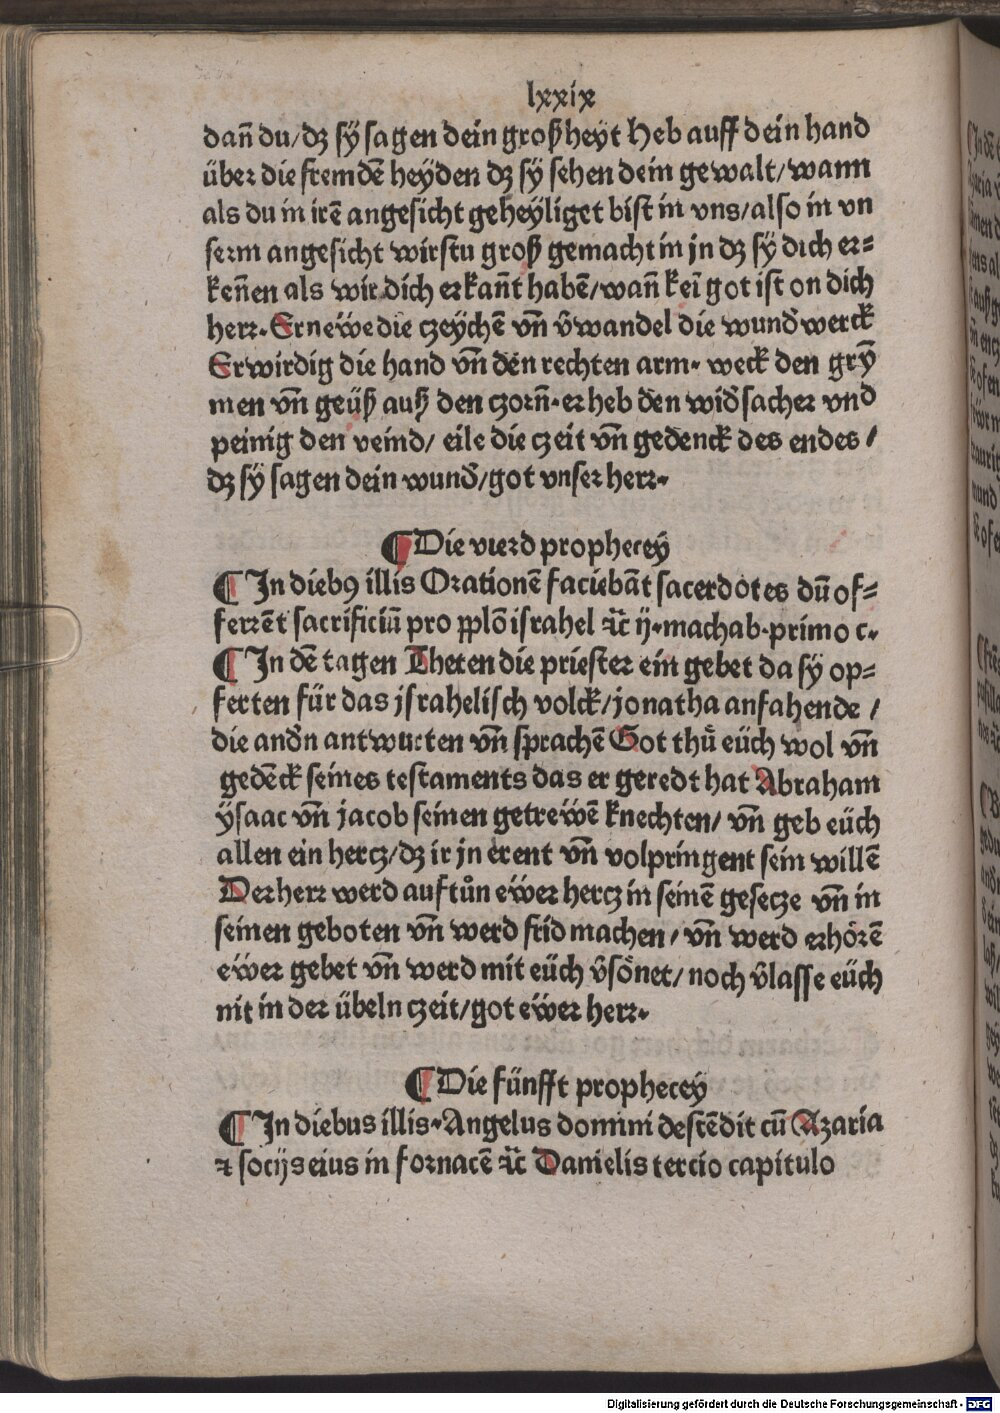 lxxix
dañ du/ dʒ sÿ sagen dein großheyt Heb auff dein hand
über die fremdē heÿden dʒ sÿ sehen dein gewalt/ wann
als du in irē angesicht geheÿliget bist in vns/ also in vn
serm angesicht wirstu groß gemacht in jn dʒ sÿ dich er=
keñen als wir dich erkañt habē/ wañ kei̅ got ist on dich
herr. Ernewe die czeÿchē vn̄ v̄wandel die wund̓werck
Erwirdig die hand vn̄ den rechten arm. weck den grȳ
men vn̄ geüß auß den czorñ. erheb den wid̓sacher vnd
peinig den veind/ eile die czeit vn̄ gedenck des endes/
dʒ sÿ sagen dein wund̓/ got vnser herr.
¶ Die vierd prophecey
¶ In diebꝰ illis Orationē faciebāt sacerdotes dū of=
ferrēt sacrificiū pro pplō israhel ⁊c̄ ij. machab. primo c.
¶ In dē tagen Theten die priester ein gebet da sÿ op=
ferten für das jsrahelisch volck/ jonatha anfahende/
die and̓n antwurten vn̄ sprachē Got thuͤ eüch wol vn̄
gedēck seines testaments das er geredt hat Abraham
ÿsaac vn̄ jacob seinen getrewē knechten/ vn̄ geb eüch
allen ein hercz/ dʒ ir jn erent vn̄ volpringent sein willē
Der herr werd auftuͦn ewer hercz in seinē gesecze vn̄ in
seinen geboten vn̄ werd frid machen/ vn̄ werd erhoͤrē
ewer gebet vn̄ werd mit eüch v̄soͤnet/ noch v̄lasse eüch
nit in der übeln czeit/ got ewer herr.
¶ Die fünfft prophecey
¶ In diebus illis. Angelus domini descēdit cū Azaria
⁊ socijs eius in fornacē ⁊c̄ Danielis tercio capitulo
Digitalisierung gefördert durch die Deutsche Forschungsgemeinschaft - DFG